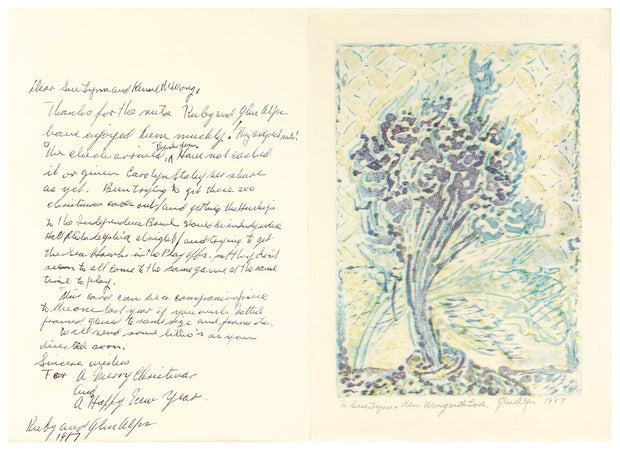 Dear Sue Lynn and Ken Wong,
Thanks for the nuts Ruby and Glen Alps
have enjoyed them muckly!
The check arrived, Thank you. Have not cashed
it or given Carolyn Staley her share
as yet. Been trying to get these 200
Christmas cards out, and getting the Huskies
to the Independence Bowl
Hall Philadelphia alright, and trying to get
the Sea Hawks in the Play offs, but they don't
seem to all come to the same game at the same
time to play.
This card can be a companion piece
to the one last year if you wish matted
framed, glassed to same size and
Will send some as your
directed soon.
Sincere wishes
For A Merry Christmas
and
A Happy New Year.
Ruby and Glen Alps
1987
To Sue Lynn + Ken Wong with Love, Glen Alps 1987